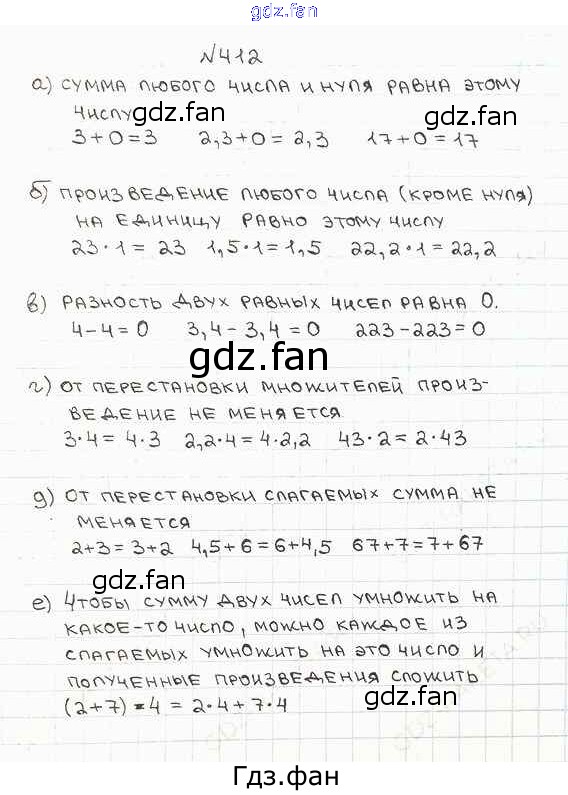 gdz.fan
№412
а) СУММА ЛЮБОГО ЧИСЛА И НУЛЯ РАВНА ЭТОМУ
ЧИСЛУ
gdz.fan gdz.fan
3+0=3 2,3+0=2,3 17+0=17
б) ПРОИЗВЕДЕНИЕ ЛЮБОГО ЧИСЛА (КРОМЕ НУЛЯ)
НА ЕДИНИЦУ РАВНО ЭТОМУ ЧИСЛУ
23·1=23 1,5·1=1,5 22,2·1=22,2
в) РАЗНОСТЬ ДВУХ РАВНЫХ ЧИСЕЛ РАВНА 0.
4-4=0 3,4-3,4=0 223-223=0
gdz.fan
г) ОТ ПЕРЕСТАНОВКИ МНОЖИТЕЛЕЙ ПРОИЗ-
ВЕДЕНИЕ НЕ МЕНЯЕТСЯ
3·4=4·3 2,2·4=4·2,2 43·2=2·43
д) ОТ ПЕРЕСТАНОВКИ СЛАГАЕМЫХ СУММА НЕ
МЕНЯЕТСЯ
2+3=3+2 4,5+6=6+4,5 67+7=7+67
gdz.fan
е) ЧТОБЫ СУММУ ДВУХ ЧИСЕЛ УМНОЖИТЬ НА
КАКОЕ-ТО ЧИСЛО, МОЖНО КАЖДОЕ ИЗ
СЛАГАЕМЫХ УМНОЖИТЬ НА ЭТО ЧИСЛО И
ПОЛУЧЕННЫЕ ПРОИЗВЕДЕНИЯ СЛОЖИТЬ
(2+7)·4=2·4+7·4
gdz.fan
Гдз.фан